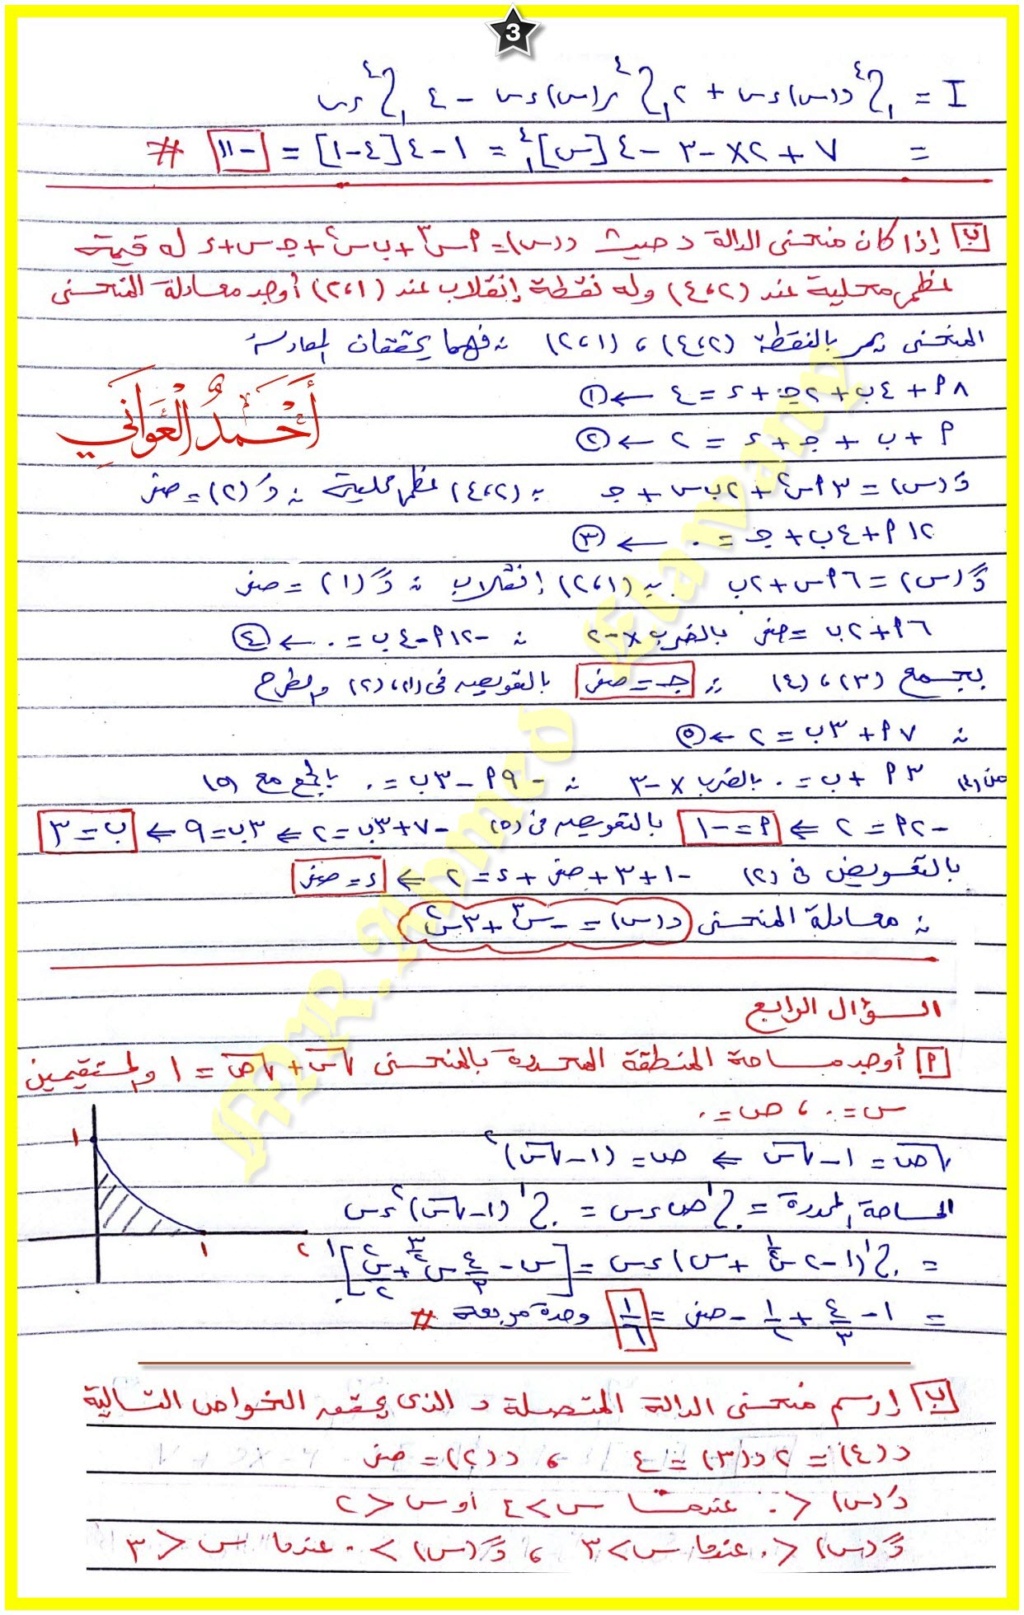 3
I = ₁∫⁴ د(س) ءس + ٢ ₁∫⁴ ر(س) ءس − ٤ ₁∫⁴ ءس
= ٧ + ٢× −٣ −٤ [س]₁⁴ = ١ − ٤[٤−١] = −١١ #
ب إذا كان منحنى الدالة د حيث د(س) = ٩س٣ + ب س٢ + جـ س + ء له قيمة
عظمى محلية عند (٤،٢) وله نقطة إنقلاب عند (٢،١) أوجد معادلة المنحنى
المنحنى يمر بالنقطة (٤،٢) ، (٢،١) ∴ فهما يحققان المعادلة
أحمد العواني
٨٩ + ٤ب + ٢جـ + ء = ٤ ← ①
٩ + ب + جـ + ء = ٢ ← ②
دَ(س) = ٣٩س٢ + ٢ب س + جـ ∵ (٤،٢) عظمى محلية ∴ دَ(٢) = صفر
١٢٩ + ٤ب + جـ = ٠ ← ③
دً(س) = ٦٩س + ٢ب ∵ (٢،١) إنقلاب ∴ دً(١) = صفر
٦٩ + ٢ب = صفر بالضرب × −٢ ∴ −١٢٩ − ٤ب = ٠ ← ④
بجمع (٣) ، (٤) ∴ جـ = صفر بالتعويض فى (١)،(٢) والطرح
∴ ٧٩ + ٣ب = ٢ ← ⑤
من (٤) ٣٩ + ب = ٠ بالضرب × −٣ ∴ −٩٩ − ٣ب = ٠ بالجمع مع (٥)
−٢٩ = ٢ ⇐ ٩ = −١ بالتعويض فى (٥) −٧ + ٣ب = ٢ ⇐ ٣ب = ٩ ⇐ ب = ٣
بالتعويض فى (٢) −١ + ٣ + صفر + ء = ٢ ⇐ ء = صفر
∴ معادلة المنحنى د(س) = −س٣ + ٣س٢
السؤال الرابع
٩ أوجد مساحة المنطقة المحددة بالمنحنى √س + √ص = ١ والمستقيمين
س = ٠ ، ص = ٠
√ص = ١ − √س ⇐ ص = (١ − √س)٢
المساحة المحددة = ₀∫¹ ص ءس = ₀∫¹ (١ − √س)٢ ءس
= ₀∫¹ (١ − ٢س^(١/٢) + س) ءس = [س − ٤/٣ س^(٣/٢) + س٢/٢]₀¹
= ١ − ٤/٣ + ١/٢ − صفر = ١/٦ وحدة مربعة #
١
١
٢
ب إرسم منحنى الدالة المتصلة د الذى يحقق الخواص التالية
د(٤) = ٢ د(٣) = ٤ ، د(٢) = صفر
دَ(س) > ٠ عندما س < ٤ أو س > ٢
دً(س) > ٠ عندما س < ٣ ، دً(س) < ٠ عندما س > ٣
Mr. Ahmed Elawany